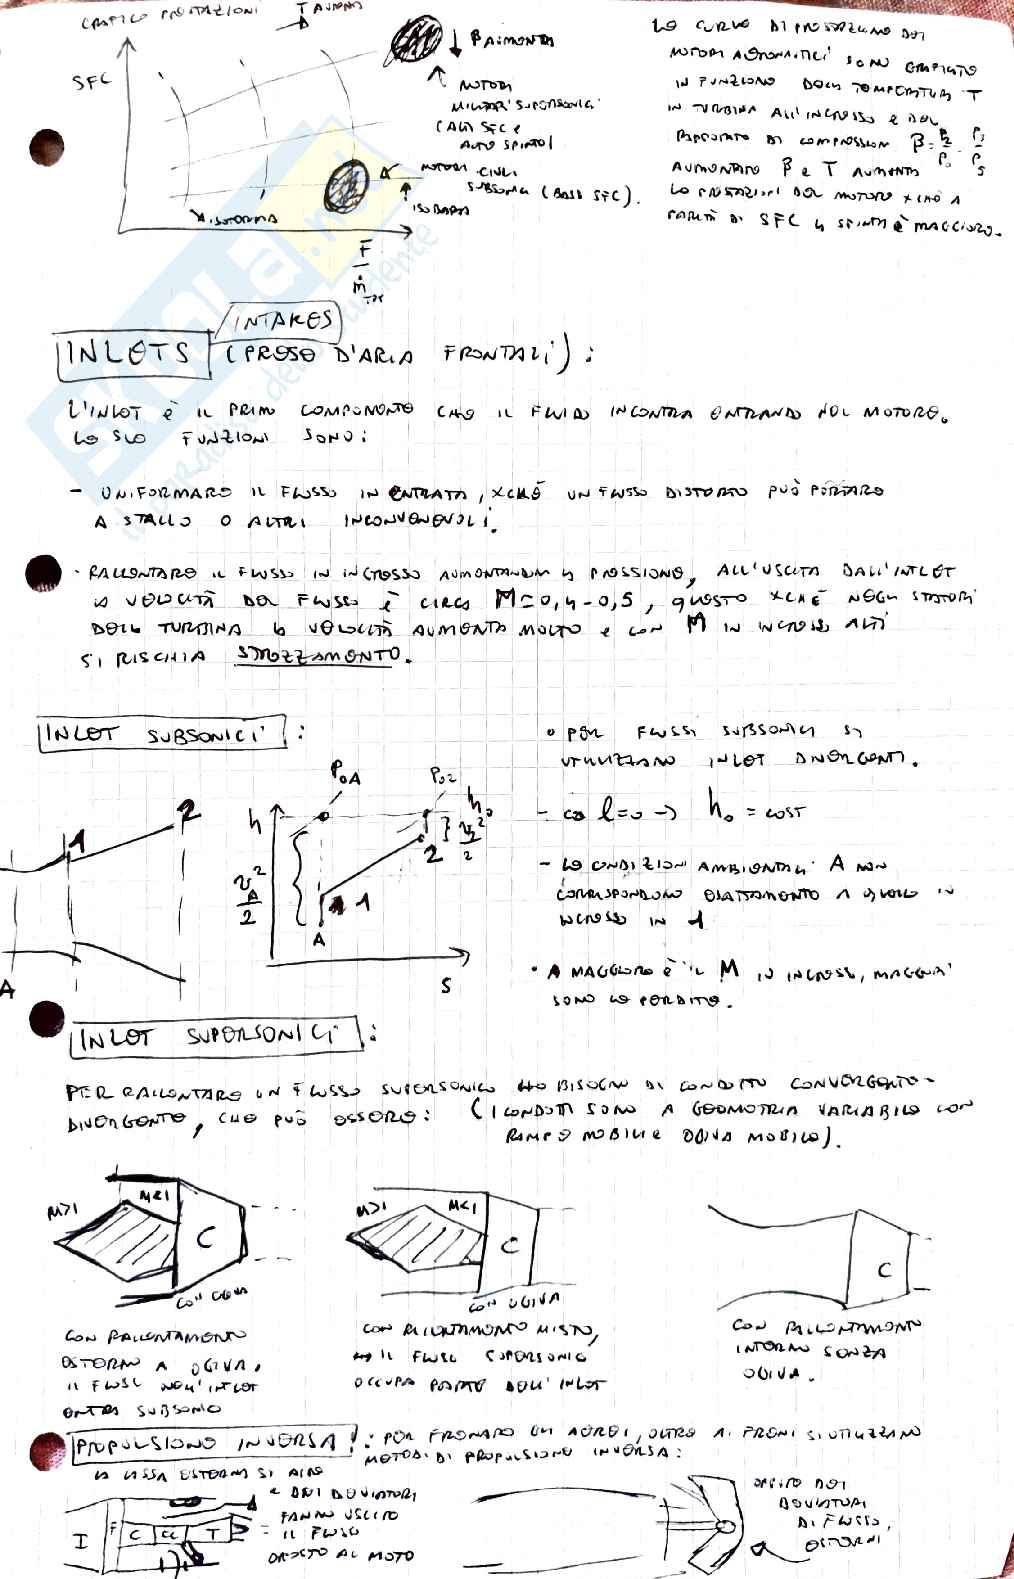 GRAFICO PRESTAZIONI
T AUMENTA
SFC
β AUMENTA
MOTORI
MILITARI SUPERSONICI
(ALTI SFC E
ALTO SPINTO)
MOTORI CIVILI
SUBSONICI (BASSI SFC).
ISOBARA
ISOTERMA
F
ṁ
LE CURVE DI PRESTAZIONE DEI
MOTORI AERONAUTICI SONO GRAFICATE
IN FUNZIONE DELLA TEMPERATURA T
IN TURBINA ALL'INGRESSO E DEL
RAPPORTO DI COMPRESSIONE β =
AUMENTANDO β E T AUMENTA
LE PRESTAZIONI DEL MOTORE XCHÈ A
PARITÀ DI SFC LA SPINTA È MAGGIORE.
INTAKES
INLETS (PRESE D'ARIA FRONTALI):
L'INLET È IL PRIMO COMPONENTE CHE IL FLUIDO INCONTRA ENTRANDO NEL MOTORE.
LE SUE FUNZIONI SONO:
- UNIFORMARE IL FLUSSO IN ENTRATA, XCHÉ UN FLUSSO DISTORTO PUÒ PORTARE
A STALLO O ALTRI INCONVENEVOLI.
- RALLENTARE IL FLUSSO IN INGRESSO AUMENTANDONE LA PRESSIONE, ALL'USCITA DALL'INLET
LA VELOCITÀ DEL FLUSSO È CIRCA M=0,4-0,5, QUESTO XCHÉ NEGLI STATORI
DELLA TURBINA LA VELOCITÀ AUMENTA MOLTO E CON M IN INGRESSO ALTI
SI RISCHIA STROZZAMENTO.
INLET SUBSONICI:
1
2
A
h
P0A
P02
h0
v²A
2
v²2
2
2
1
A
S
• PER FLUSSI SUBSONICI SI
UTILIZZANO INLET DIVERGENTI.
- l=0 → h0 = COST
- LE CONDIZIONI AMBIENTALI A NON
CORRISPONDONO ESATTAMENTE A QUELLE IN
INGRESSO IN 1
• A MAGGIORE È IL M IN INGRESSO, MAGGIORI
SONO LE PERDITE.
INLET SUPERSONICI:
PER RALLENTARE UN FLUSSO SUPERSONICO HO BISOGNO DI CONDOTTO CONVERGENTE-
DIVERGENTE, CHE PUÒ ESSERE: (I CONDOTTI SONO A GEOMETRIA VARIABILE CON
RAMPE MOBILI E OGIVA MOBILE).
M>1
M<1
C
CON OGIVA
CON RALLENTAMENTO
ESTERNO A OGIVA.
IL FLUSSO NELL'INLET
ENTRA SUBSONICO
M>1
M<1
C
CON OGIVA
CON RALLENTAMENTO MISTO,
IL FLUSSO SUPERSONICO
OCCUPA PARTE DELL'INLET
C
CON RALLENTAMENTO
INTERNO SENZA
OGIVA.
PROPULSIONE INVERSA: PER FRENARE GLI AEREI, OLTRE AI FRENI SI UTILIZZANO
METODI DI PROPULSIONE INVERSA:
LA CASSA ESTERNA SI APRE
E DEI DEVIATORI
FANNO USCIRE
IL FLUSSO
OPPOSTO AL MOTO
I
F
C
CC
T
OPPURE DEI
DEVIATORI
DI FLUSSO,
ESTERNI